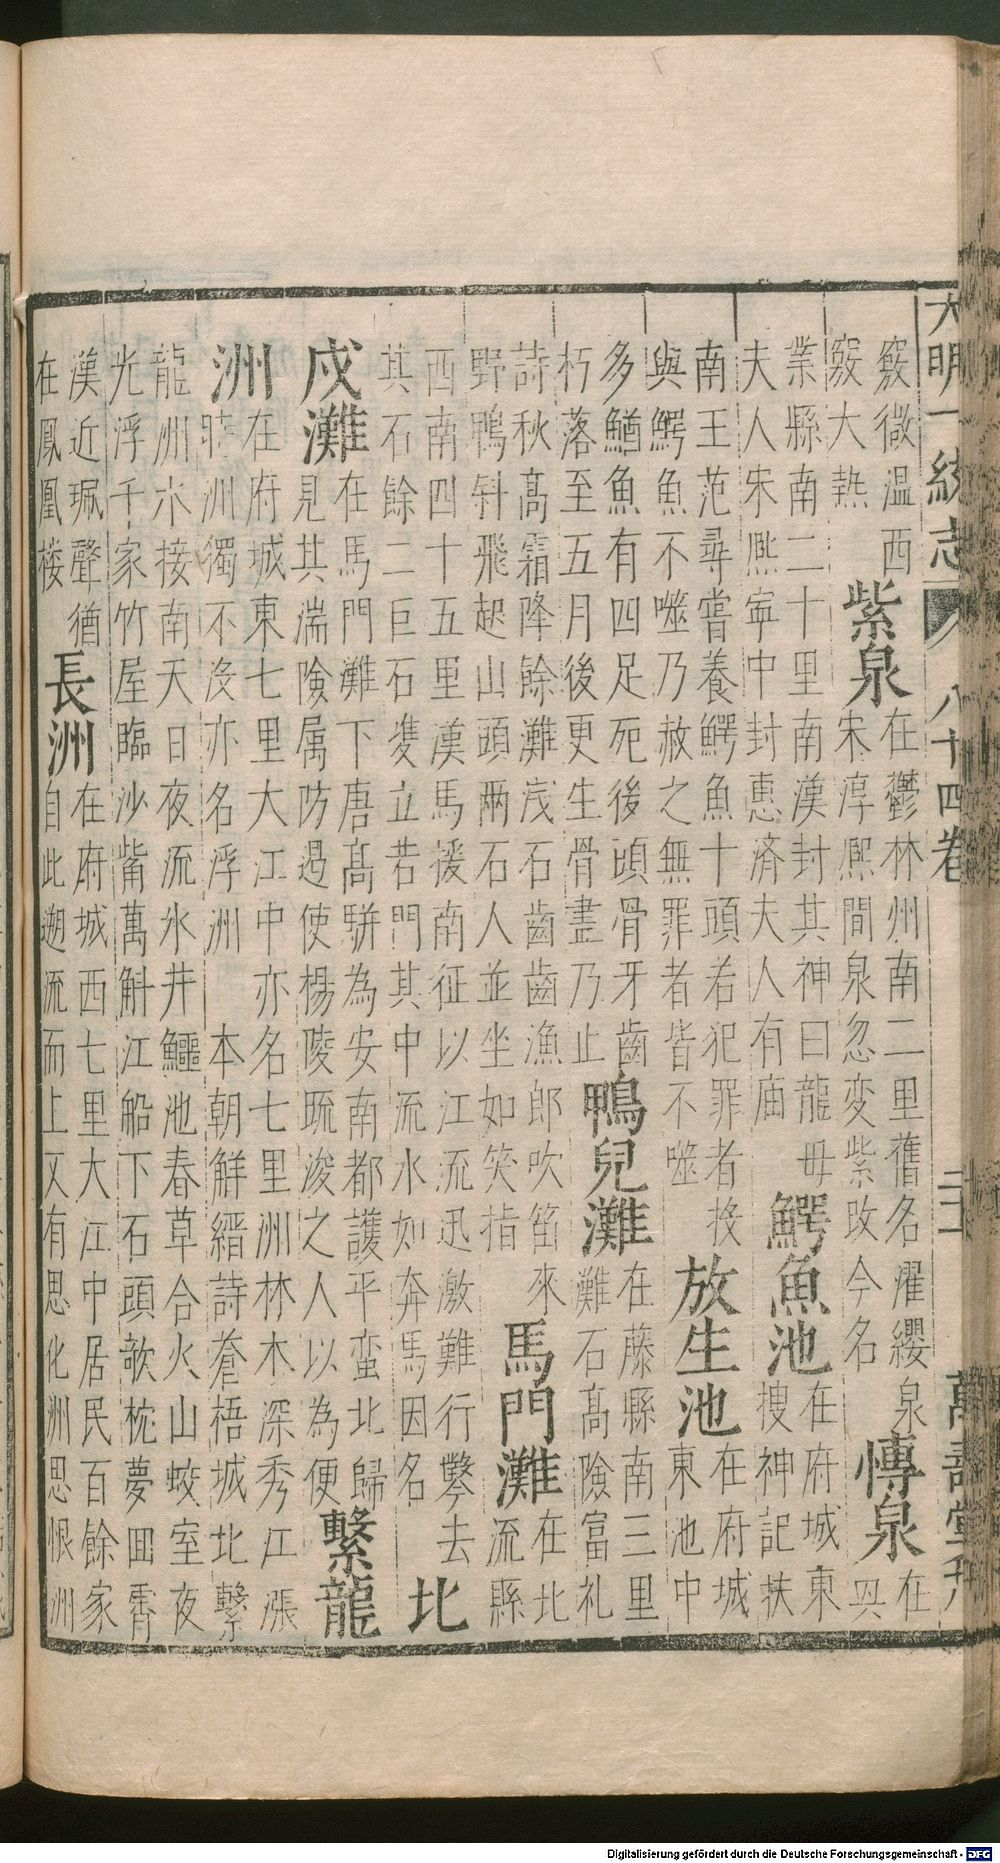 大明一統志 八十四卷 萬壽堂刊
竅微溫西
竅大熱
紫泉
在鬱林州南二里舊名濯纓泉
宋淳熈間泉忽変紫改今名
慱泉
在
㒷
業縣南二十里南漢封其神曰龍母
夫人宋熈寧中封惠济夫人有庙
鰐魚池
在府城東
搜神記扶
南王范尋嘗養鰐魚十頭若犯罪者投
與鰐魚不噬乃赦之無罪者皆不噬
放生池
在府城
東池中
多鰌魚有四足死後頭骨牙齒
朽落至五月後更生骨盡乃止
鴨兒灘
在藤縣南三里
灘石髙險富礼
詩秋髙霜降餘灘浅石齒齒漁郎吹笛來
野鴨斜飛起山頭兩石人並坐如笑指
馬門灘
在北
流縣
西南四十五里漢馬援南征以江流迅激難行鑿去
其石餘二巨石㕠立若門其中流水如奔馬因名
北
戍灘
在馬門灘下唐髙駢為安南都護平蛮北歸
見其湍險属防遏使楊陵䟽浚之人以為便
繫龍
洲
在府城東七里大江中亦名七里洲林木深秀江漲
時洲獨不沒亦名浮洲 本朝解縉詩蒼梧城北繫
龍洲水接南天日夜流氷井鱷池春草合火山蛟室夜
光浮千家竹屋臨沙觜萬斛江船下石頭歌枕夢囬霄
漢近珮聲猶
在鳳凰楼
長洲
在府城西七里大江中居民百餘家
自此遡流而上又有思化洲思恨洲
Digitalisierung gefördert durch die Deutsche Forschungsgemeinschaft - DFG